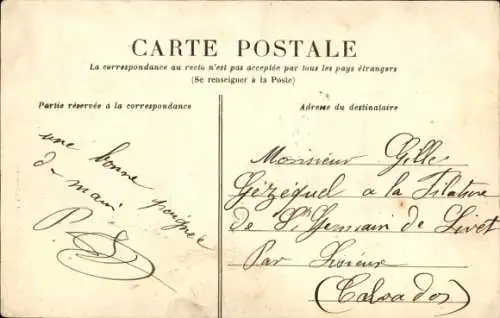 CARTE POSTALE
La correspondance au recto n'est pas acceptée par tous les pays étrangers
(Se renseigner à la Poste)
Partie réservée à la correspondance
Adresse du destinataire
une bonne poignée
de main
P
Monsieur Gille
Gézéquel a la Filature
de St Germain de Livet
Par Lisieux
(Calvados)